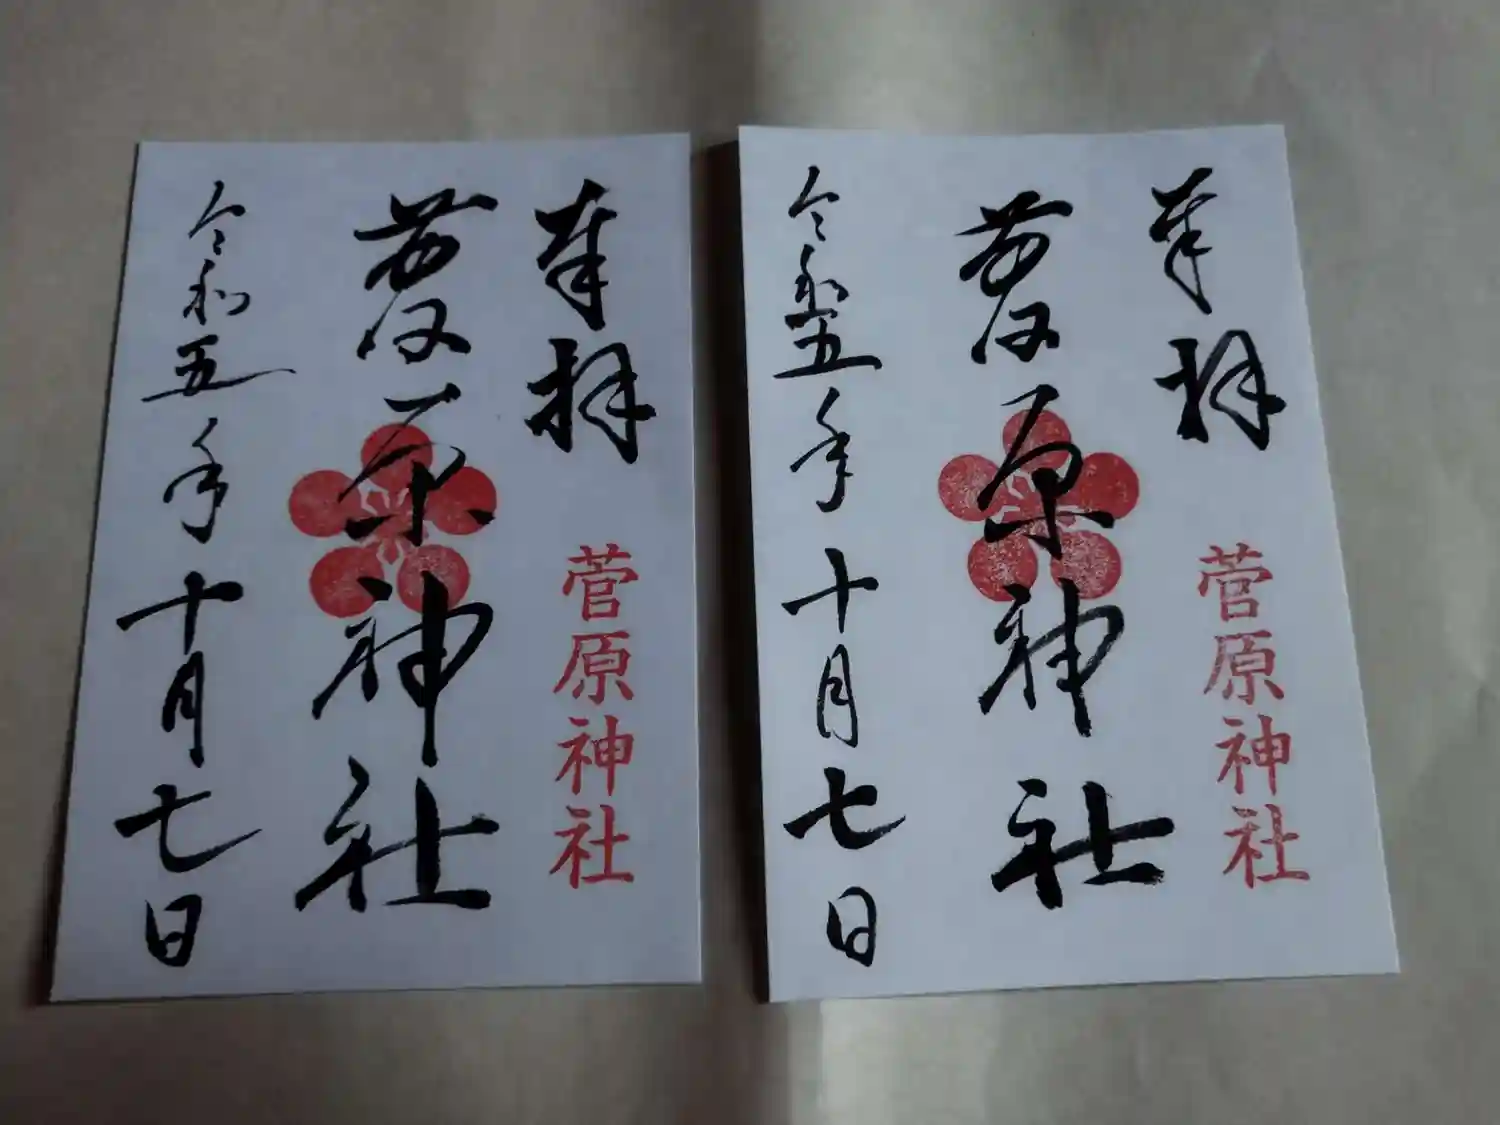 奉拝
菅原神社
菅原神社
令和五年十月七日
奉拝
菅原神社
菅原神社
令和五年十月七日